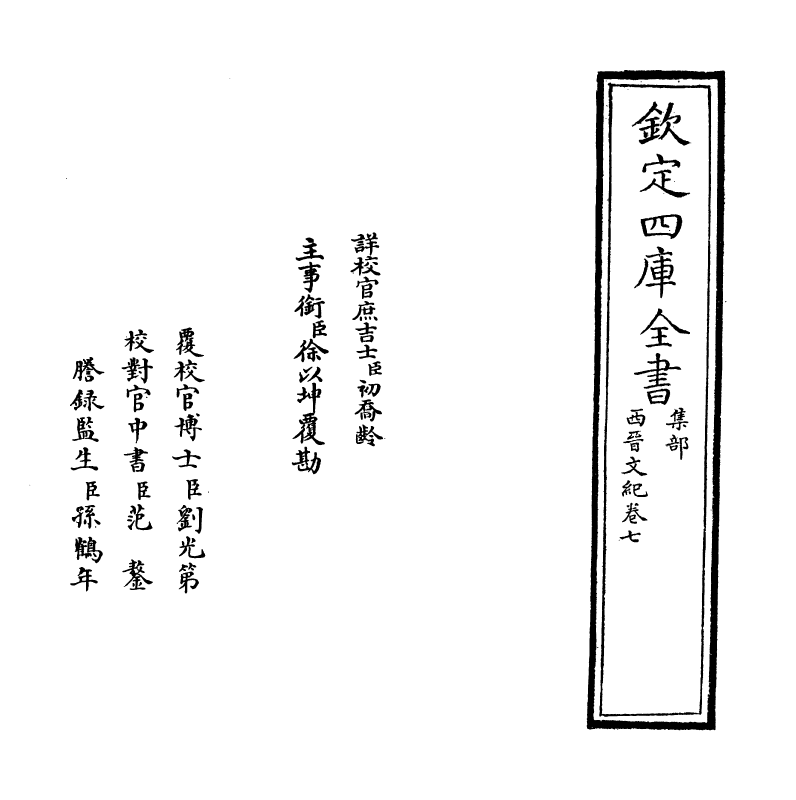 欽定四庫全書
集部
西晉文紀卷七
詳校官庶吉士臣初喬齡
主事銜臣徐以坤覆勘
覆校官博士臣劉光第
校對官中書臣范鏊
謄録監生臣孫鶴年